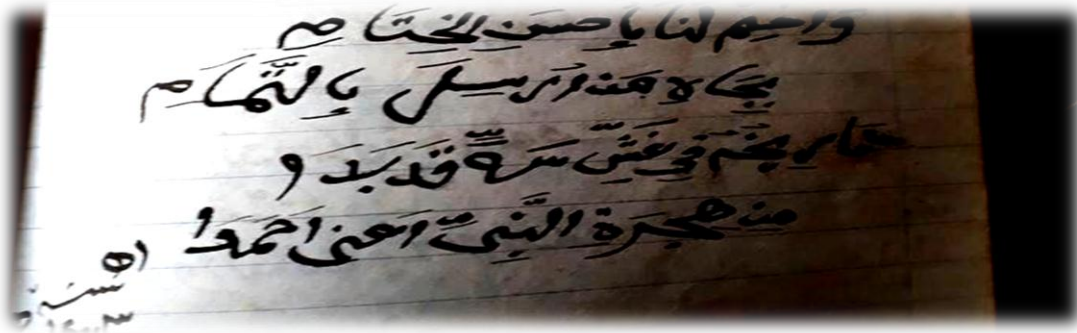 وَاختِم لنَا بِاحسَنِ الخِتَامِ
بِجَاهِ مَن ارسِلَ بِالتَّمَامِ
في غَشِّ سَنَةً قَدبَدَ و
مِن هجرَة النَّبِيِّ اَعنِي اَحمَدَا
اه
سنة